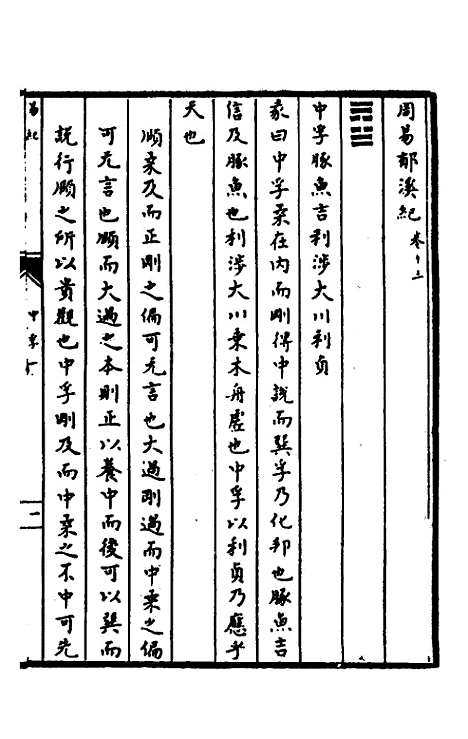 周易郁溪紀卷十二
䷼
中孚豚魚吉利涉大川利貞
彖曰中孚柔在內而剛得中說而巽孚乃化邦也豚魚吉
信及豚魚也利涉大川乗木舟虛也中孚以利貞乃應乎
天也
順柔及而正剛之偏可无言也大過剛過而中柔之偏
可无言也順而大過之本則正以養中而後可以巽而
說行順之所以貴觀也中孚剛及而中柔之不中可先
易紀
中孚